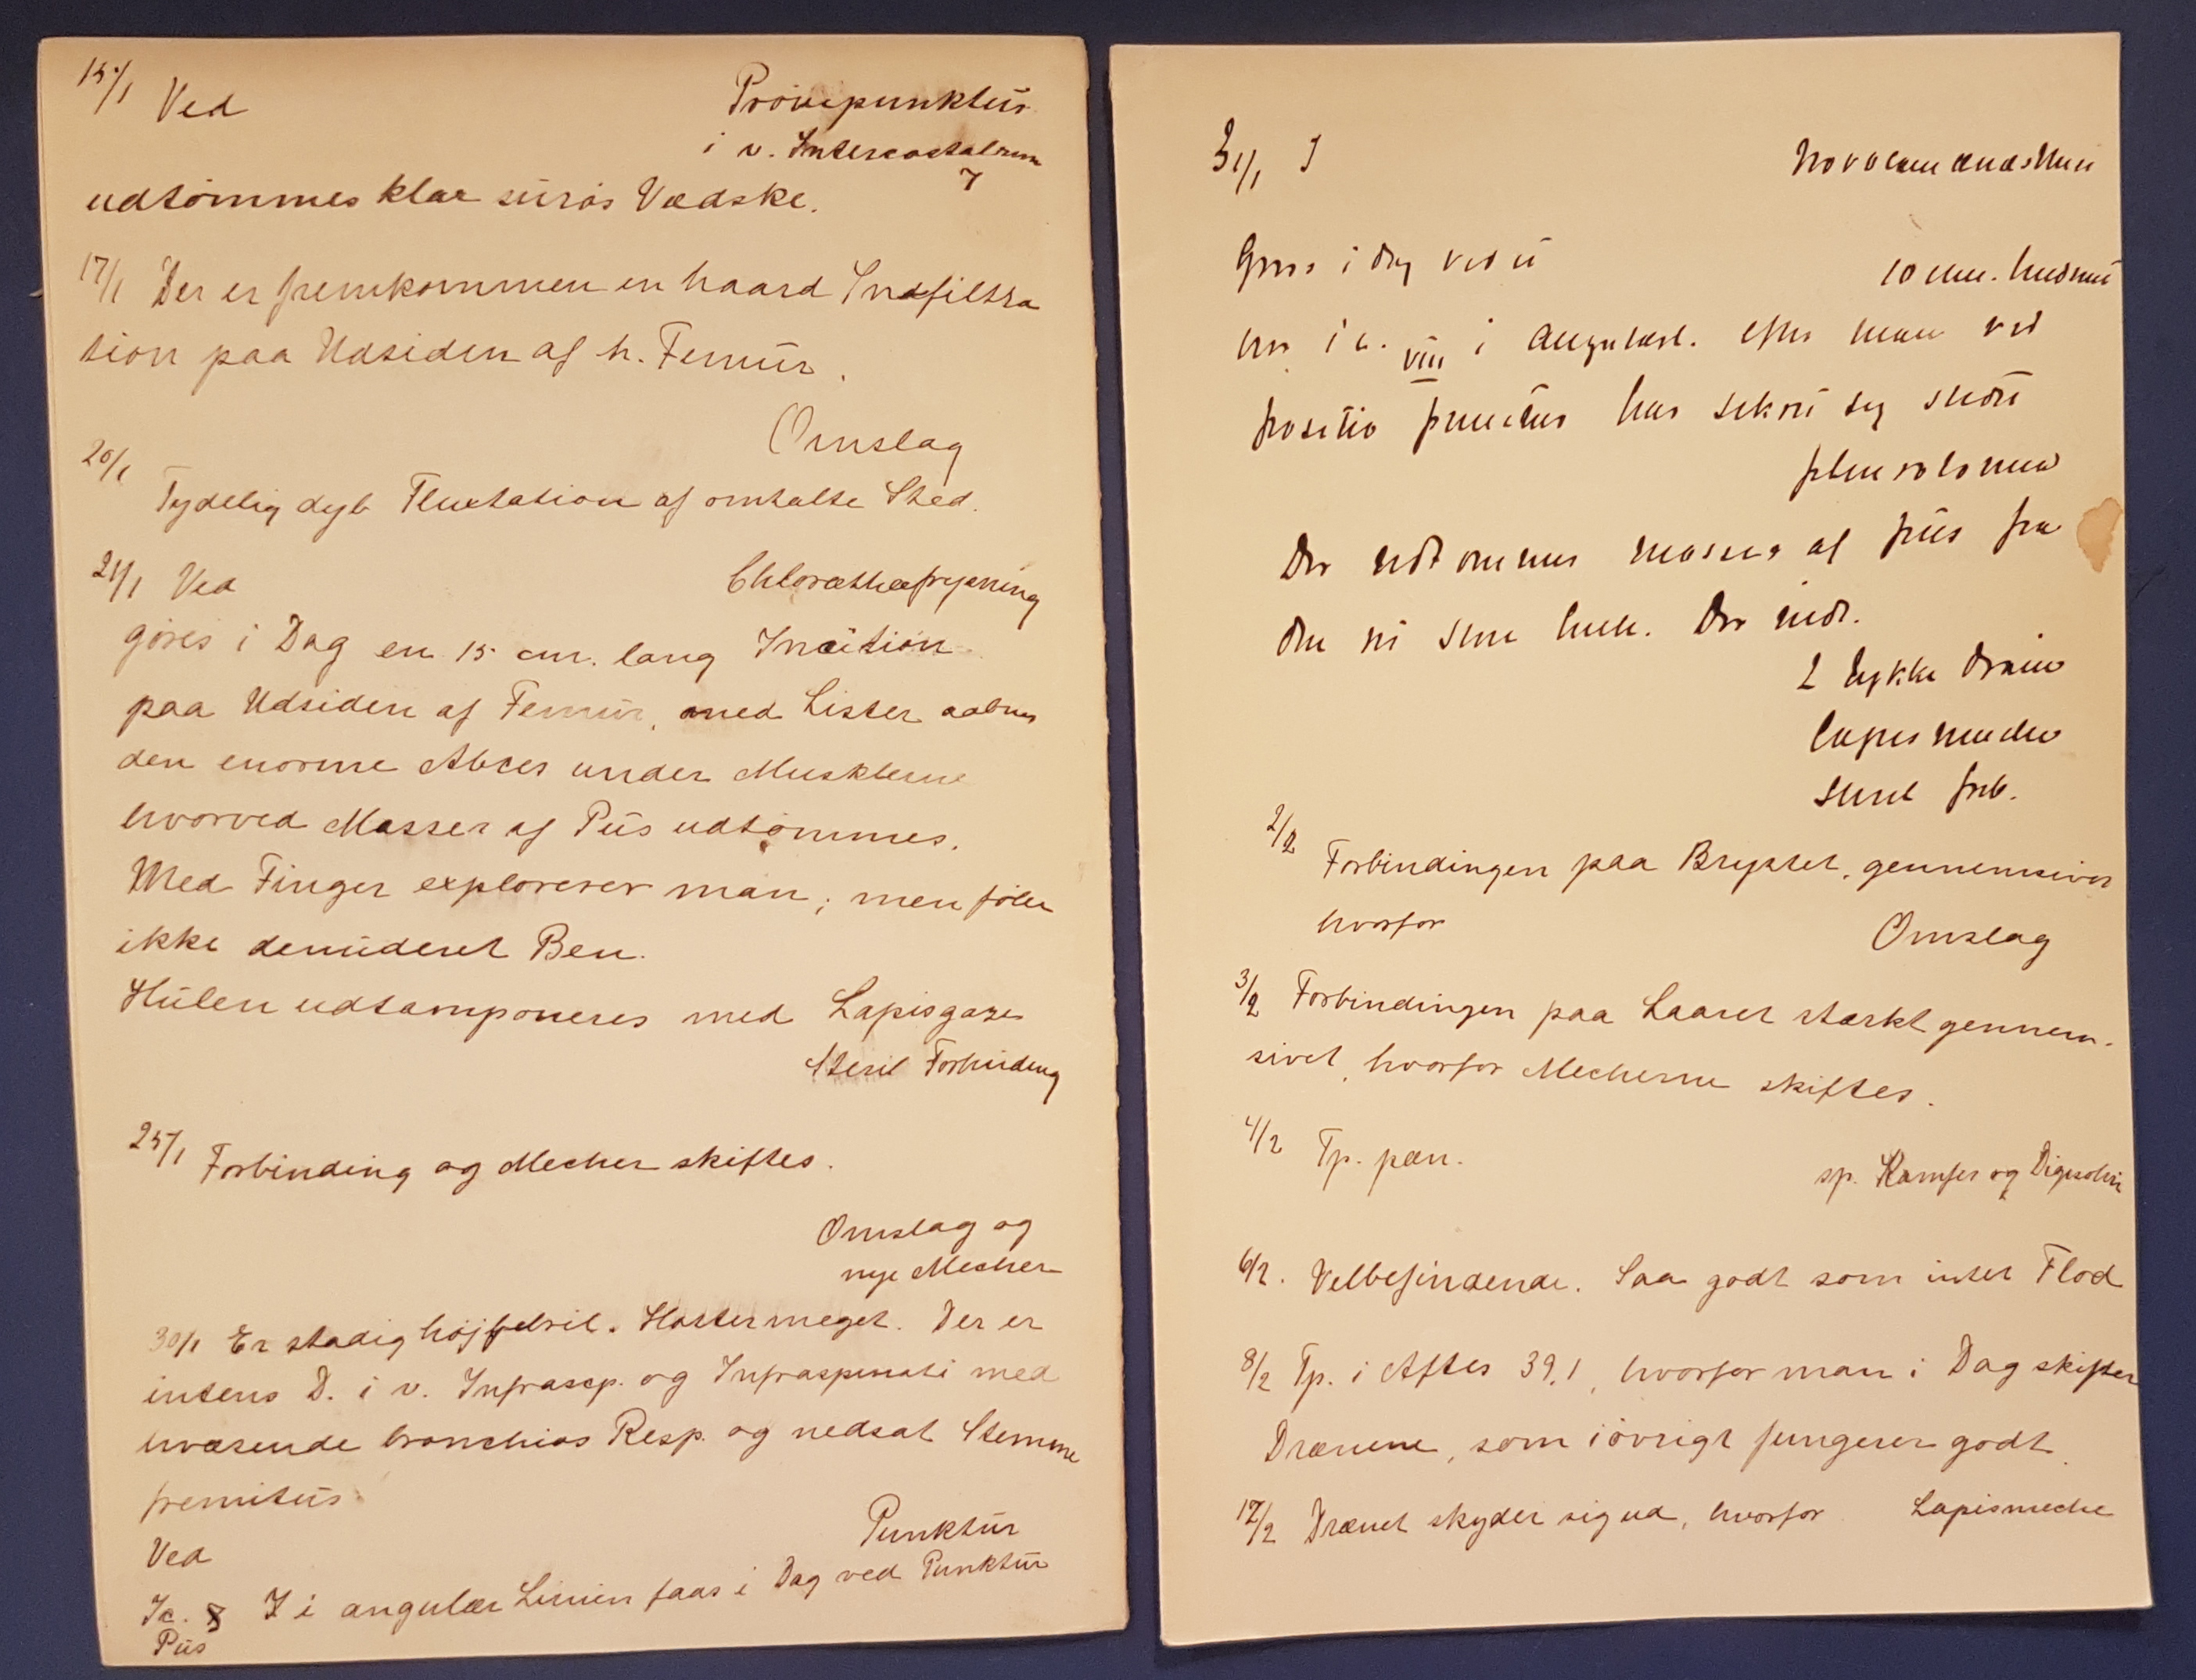 15/1 Ved Prövepunktur
i v. Intercostalrum
7
udtömmes klar surös Vædske.
17/1 Der er fremkommen en haard Indfiltra
tion paa Udsiden af h. Femur.
Omslag
20/1
Tydelig dyb Fluctation af omtalte Sted.
21/1 Ved Chlorætherfrysning
göres i Dag en 15 cm. lang Incition
paa Udsiden af Femur, med Lister aabnes
den enorme Absces under Musklerne
hvorved Masser af Pus udtömmes.
Med Finger explorerer man; men föler
ikke denuderet Ben.
Hulen udtamponeres med Lapisgaze
Steril Forbinding
25/1 Forbinding og Mecher skiftes.
Omslag og
nye Mecher
30/1 Er stadig höjfebril. Hoster meget. Der er
intens D. i v. Infrascp. og Infraspinati med
hvæsende bronchios Resp. og nedsat Stemme
fremitus
Ved Punktur
Ic. 7 i angulær Linien faas i Dag ved Punktur
Pus
31/1 I
i dag ved
10 cm.
i c. VIII i man ved
positiv har sikret sig
Der udtömmes masser af pus fra
Der indl.
2 tykke dræn
Lapismeche
steril forb.
2/2
Forbindingen paa Brystet, gennemsivet
hvorfor Omslag
3/2 Forbindingen paa Laaret stærkt gennem-
sivet, hvorfor Mecherne skiftes.
4/2 Tp. pæn.
sp. Kamfer og Digisolvin
6/2. Velbefindende. Saa godt som intet Flod
8/2 Tp. i Aftes 39,1, hvorfor man i Dag skifter
Drænene, som iövrigt fungerer godt.
12/2 Drænet skyder sig ud, hvorfor Lapismeche